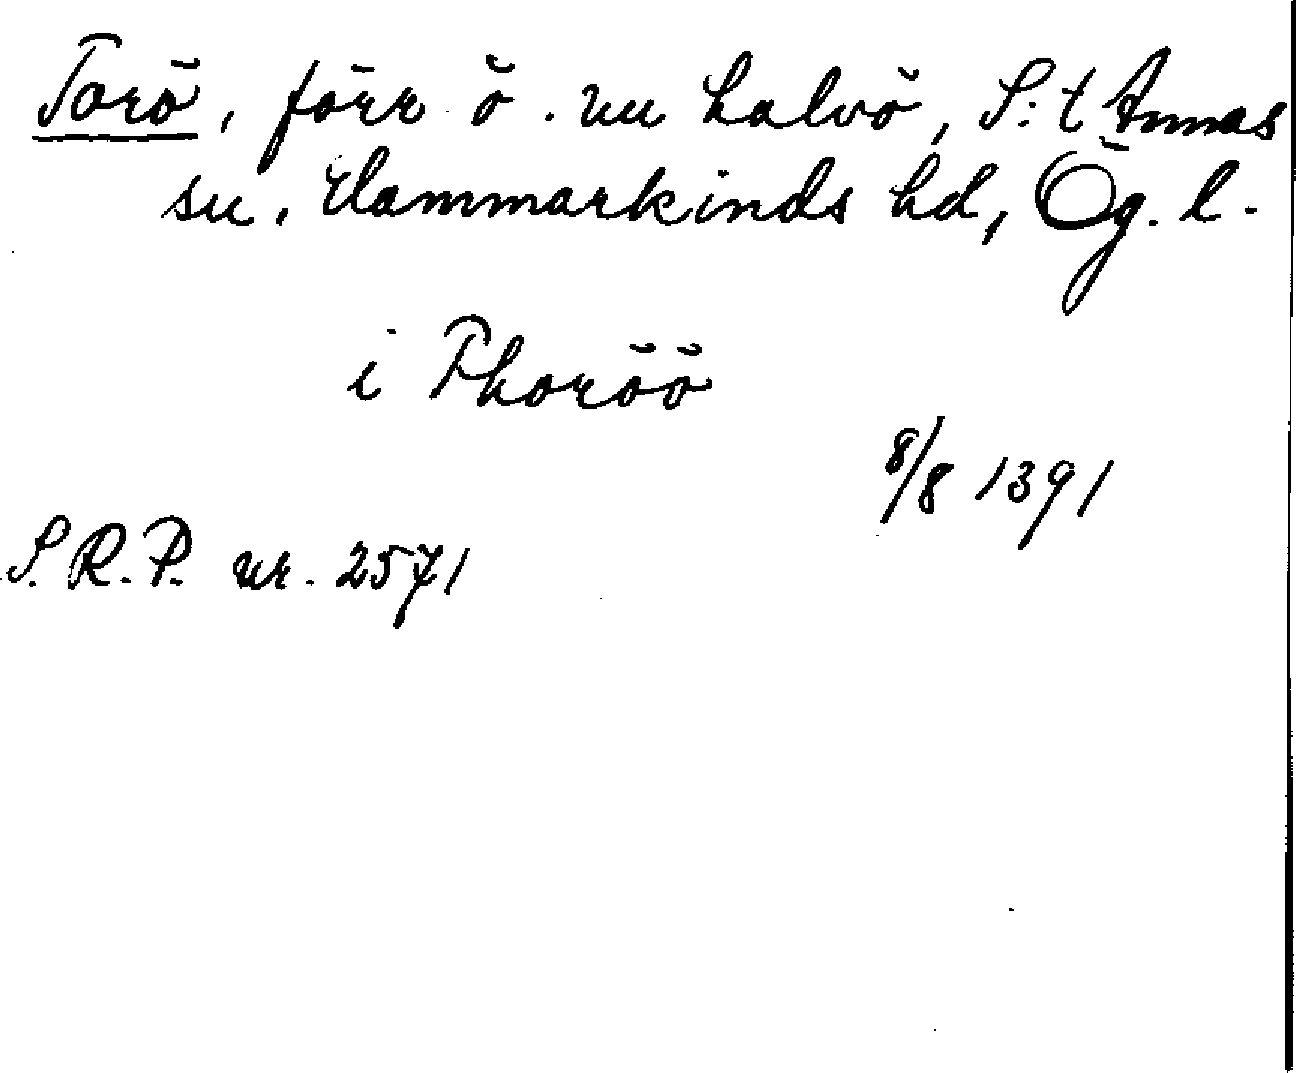 Torö, förr ö. nu halvö, S:t Annas
sn, Hammarkinds hd, Ög. l.
i Thoröö
8/8 1391
S.R.P. nr. 2571